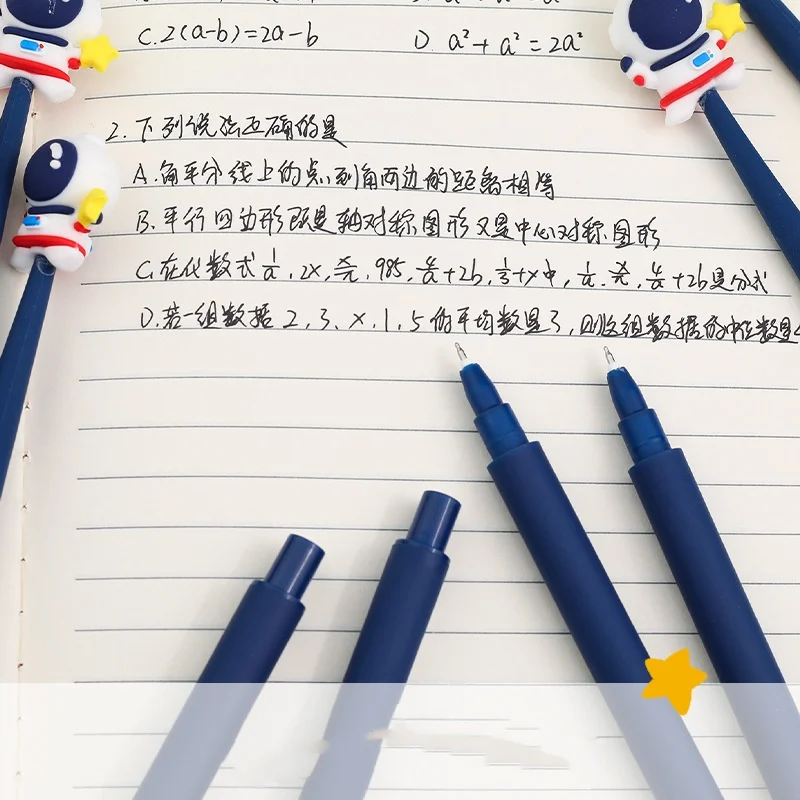 C. 2(a-b)=2a-b D a²+a²=2a²
2. 下列说法正确的是
A. 角平分线上的点到角两边的距离相等
B. 平行四边形既是轴对称图形又是中心对称图形
C. 在代数式 1/a, 2x, x/π, 985, 4/a+2b, 1/3+x中, 1/a, x/π, 4/a+2b是分式
D. 若一组数据 2, 3, x, 1, 5 的平均数是3, 则这组数据的中位数是